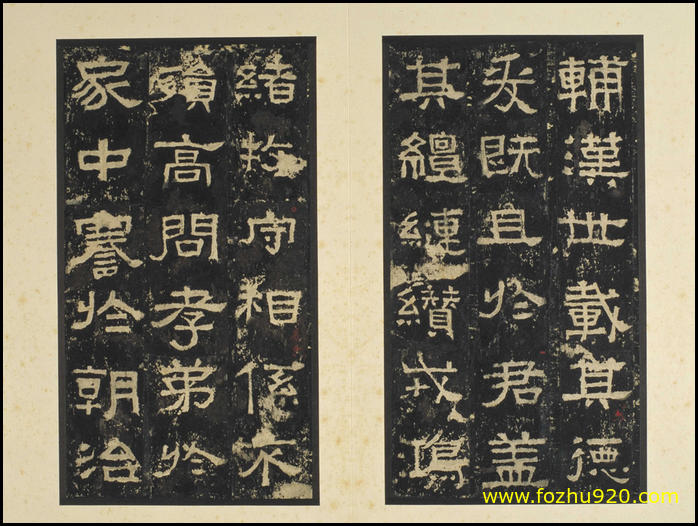 輔漢世載其德
爰既且於君蓋
其繵縺纘戎鴻
緒牧守相係不
殞高問孝弟於
家中謇於朝治
www.fozhu920.com